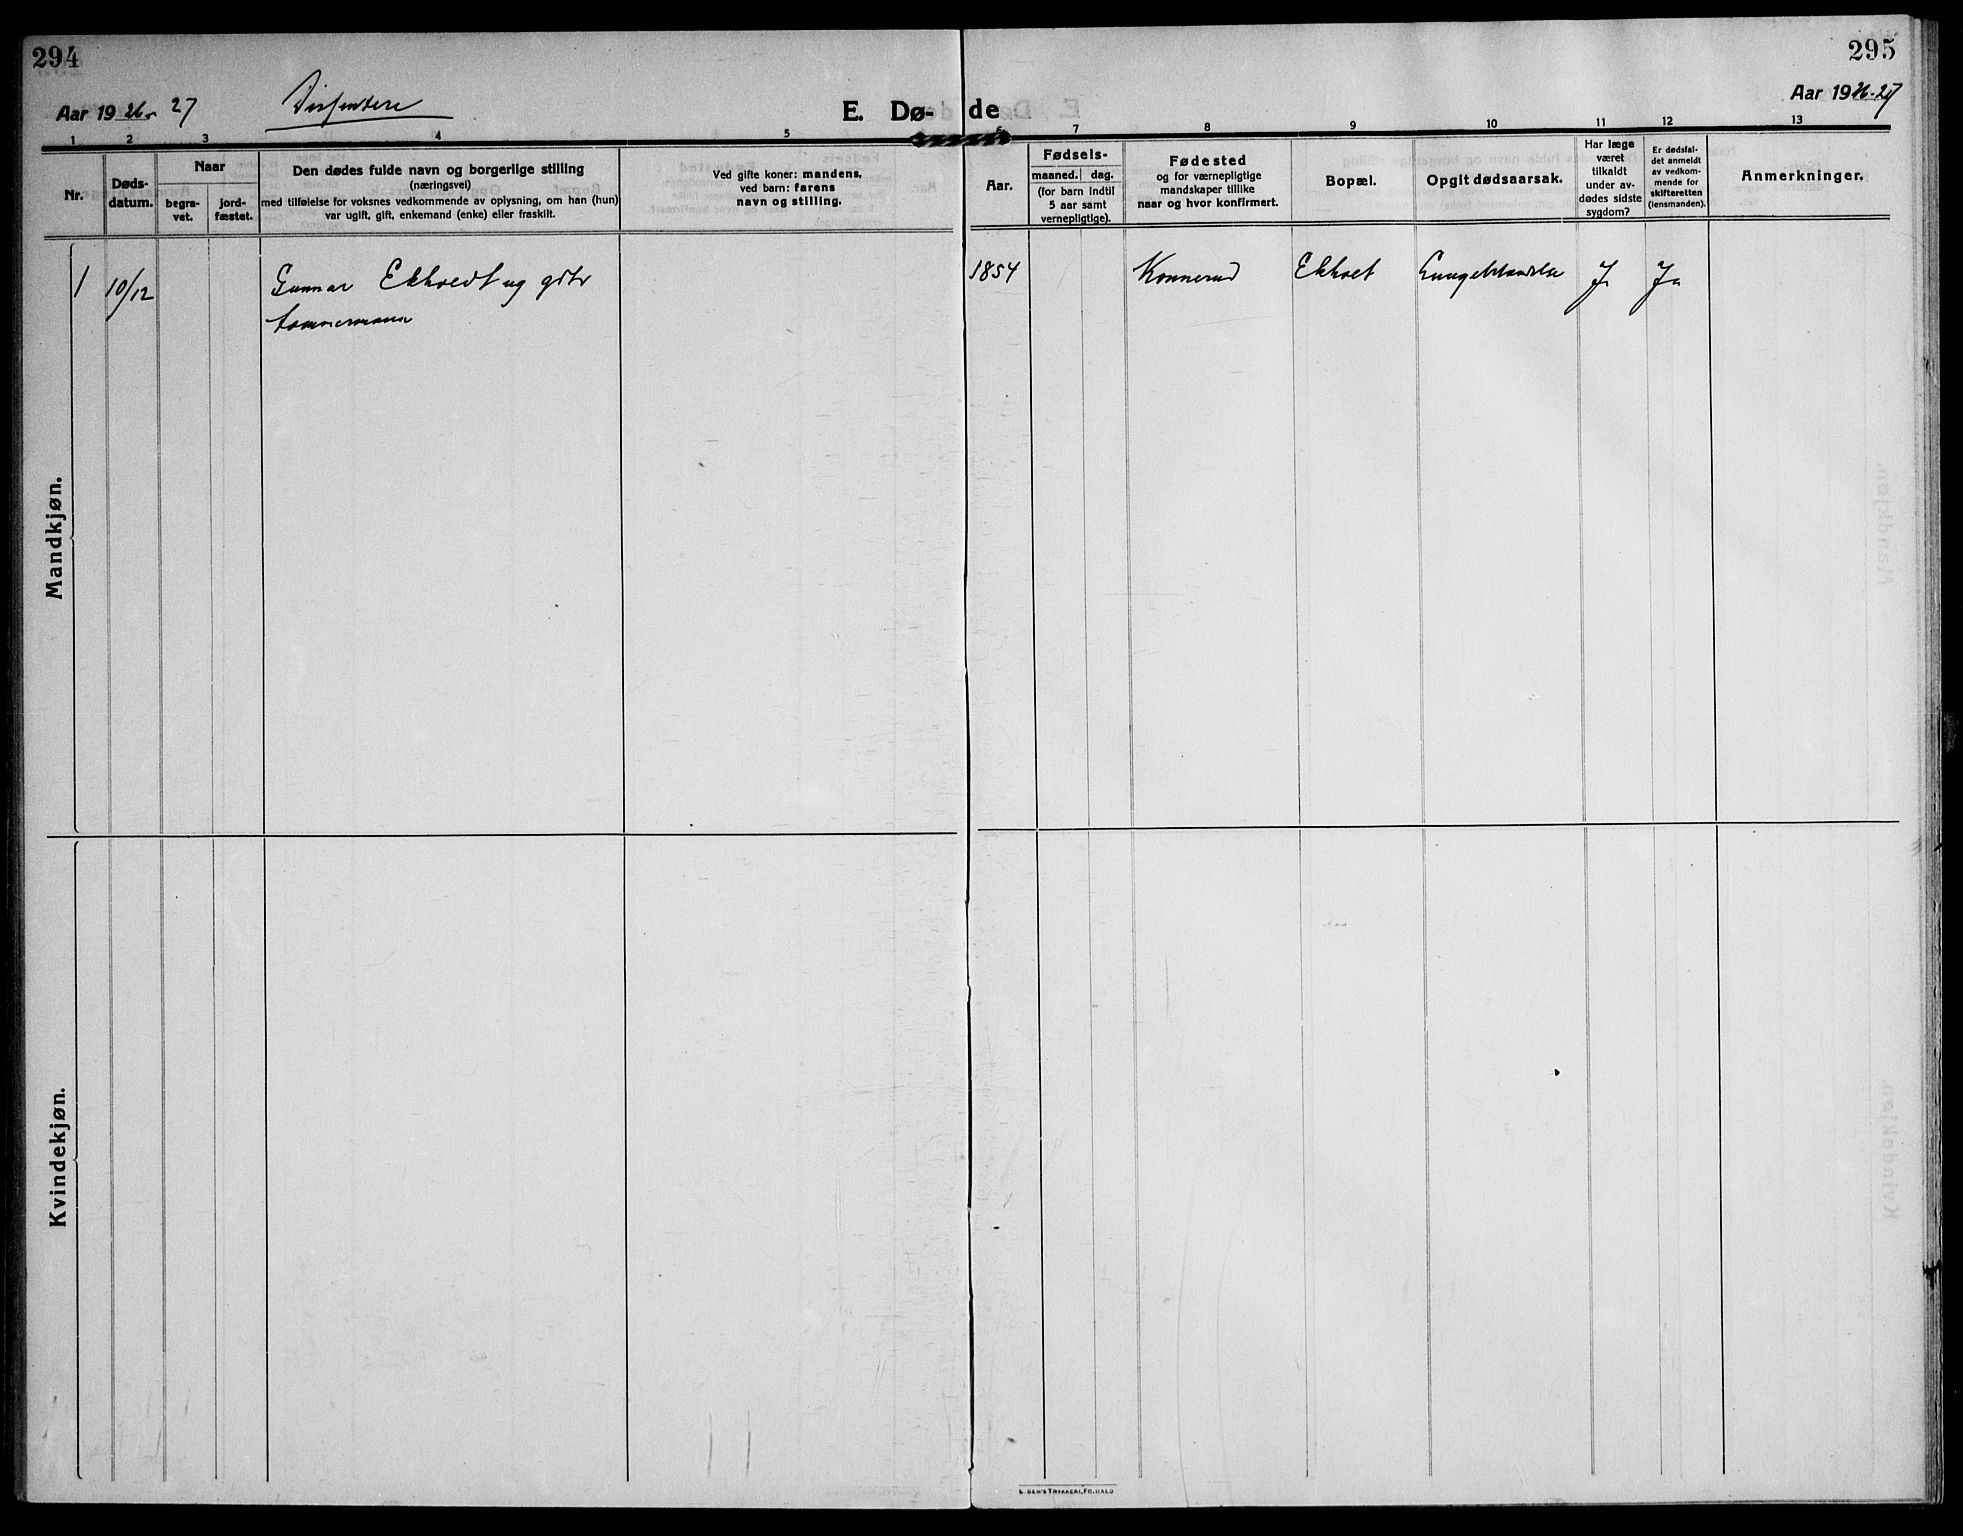 294
295
Aar 1926-27
Dissentere
E. Dø- de
Aar 1926-27
1 2 3 4 5 6 7 8 9 10 11 12 13
Nr.
Døds-
datum.
Naar
begra-
vet.
jord-
fæstet.
Den dødes fulde navn og borgerlige stilling
(næringsvei)
med tilføielse for voksnes vedkommende av oplysning, om han (hun)
var ugift, gift, enkemand (enke) eller fraskilt.
Ved gifte koner: mandens,
ved barn: farens
navn og stilling.
Aar.
Fødsels-
maaned. dag.
(for barn indtil
5 aar samt
vernepligtige).
Fødested
og for værnepligtige
mandskaper tillike
naar og hvor konfirmert.
Bopæl.
Opgit dødsaarsak.
Har læge
været
tilkaldt
under av-
dødes sidste
sygdom?
Er dødsfal-
det anmeldt
av vedkom-
mende for
skifteretten
(lensmanden).
Anmerkninger.
Mandkjøn.
1 10/12 Gunnar Ekholdt ug 1854 Konnerud Ekholt Ja Ja
tømmermann
Kvindekjøn.